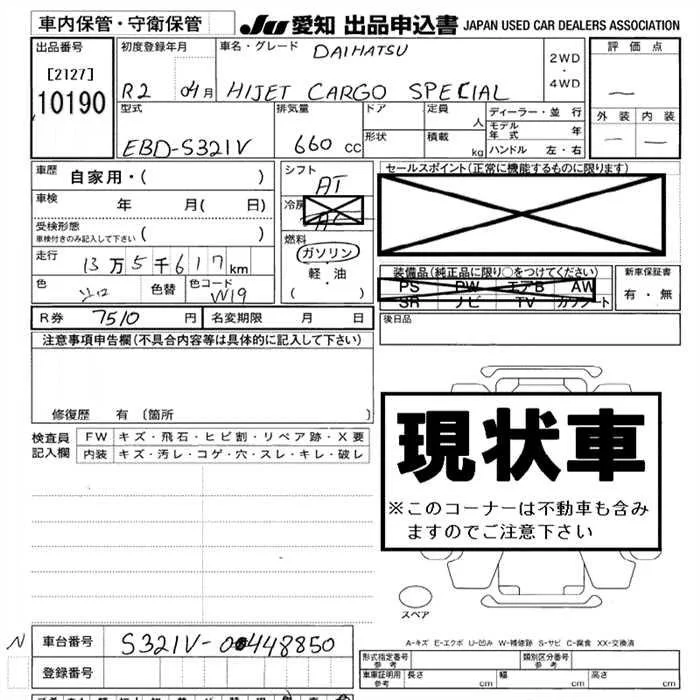 車内保管・守衛保管
JU 愛知 出品申込書 JAPAN USED CAR DEALERS ASSOCIATION
出品番号
[2127]
10190
初度登録年月
R2 04月
車名・グレード
DAIHATSU
HIJET CARGO SPECIAL
2WD
・
4WD
評価点
—
外装 内装
— —
型式
EBD-S321V
排気量
660 cc
ドア
形状
定員 人
積載 kg
ディーラー・並行
モデル年式 年
ハンドル 左・右
車歴
自家用・( )
車検 年 月( 日)
受検形態
車検付きのみ記入して下さい ( )
走行 13万5千617km
色
色替
色コード
W19
シフト
AT
冷房
AC
燃料
ガソリン
軽・油
( )
セールスポイント(正常に機能するものに限ります)
装備品(純正品に限り○をつけてください)
PS PW エアB AW
SR ナビ TV カワシート
新車保証書
有・無
R券 7510 円 名変期限 月 日
後日品
注意事項申告欄(不具合内容等は具体的に記入して下さい)
修復歴 有〔箇所 〕
検査員
記入欄
FW キズ・飛石・ヒビ割・リペア跡・X要
内装 キズ・汚レ・コゲ・穴・スレ・キレ・破レ
現状車
※このコーナーは不動車も含み
ますのでご注意下さい
スペア
A-キズ E-エクボ U-凹み W-補修跡 S-サビ C-腐食 XX-交換済
N
車台番号 S321V-0448850
登録番号
形式指定番号
参考
類別区分番号
参考
車庫証明用
参考
長さ cm
幅 cm
高さ cm